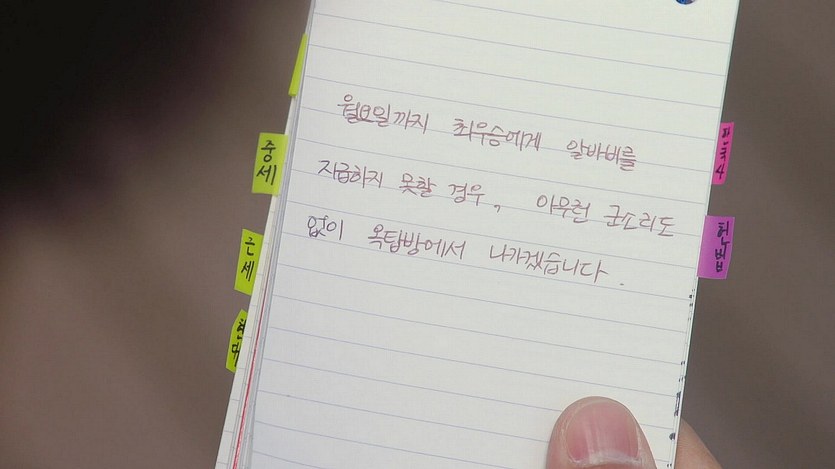 월요일까지 최우승에게 알바비를
지급하지 못할 경우, 아무런 군소리도
없이 옥탑방에서 나가겠습니다.
중세
근세
현대
헌법